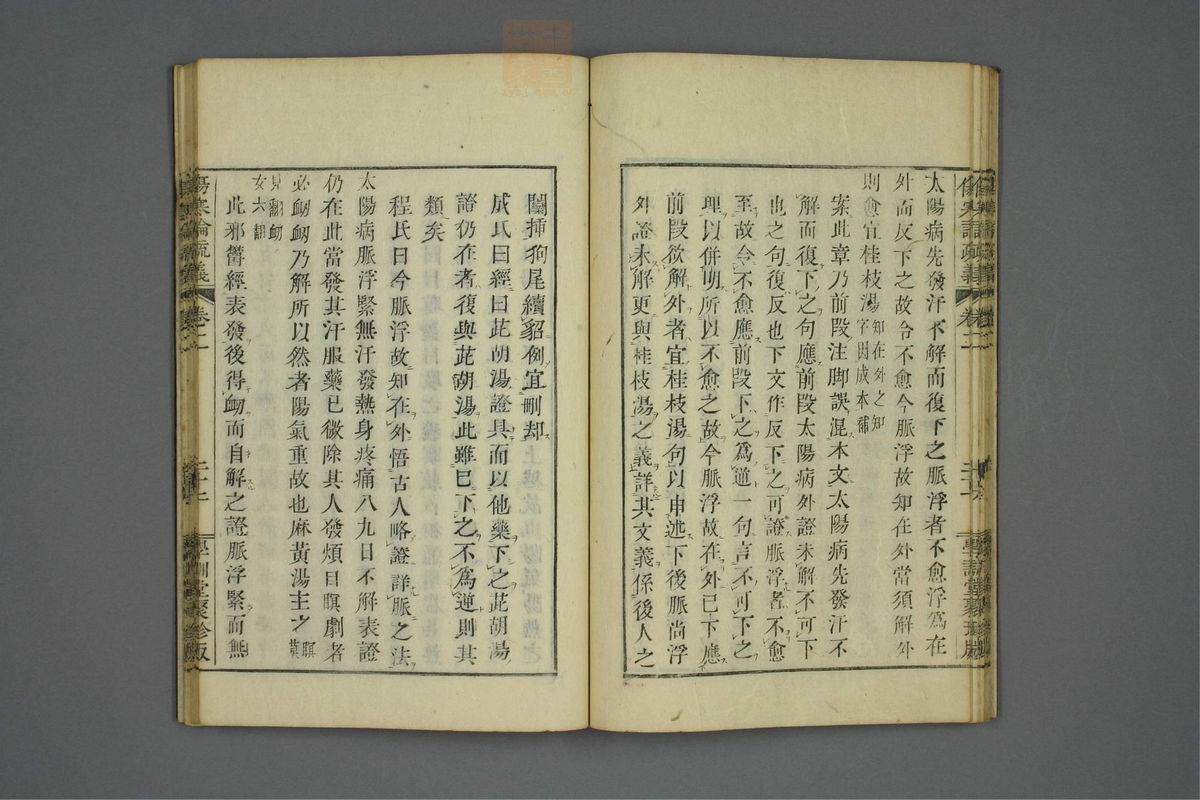 太陽病先發汗不解而復下之脈浮者不愈浮爲在
外而反下之故令不愈今脈浮故知在外當須解外
則愈宜桂枝湯知在外之知字因成本補
案此章乃前段注脚誤混本文太陽病先發汗不
解而復下之句應前段太陽病外證未解不可下
也之句復反也下文作反下之可證脈浮者不愈
至故令不愈應前段下之爲逆一句言不可下之
理以併明所以不愈之故今脈浮故在外已下應
前段欲解外者宜桂枝湯句以申述下後脈尚浮
外證未解更與桂枝湯之義詳其文義係後人之
闌挿狗尾續貂例宜刪却
成氏曰經曰茈胡湯證具而以他藥下之茈胡湯
證仍在者復與茈胡湯此雖已下之不爲逆則其
類矣
程氏曰今脈浮故知在外悟古人略證詳脈之法
太陽病脈浮緊無汗發熱身疼痛八九日不解表證
仍在此當發其汗服藥已微除其人發煩目瞑劇者
必衂衂乃解所以然者陽氣重故也麻黃湯主之瞑莫
見翻衂
女六翻
此邪鬱經表發後得衂而自解之證脈浮緊而無
傷寒論疏義
卷二
學訓堂聚珍版